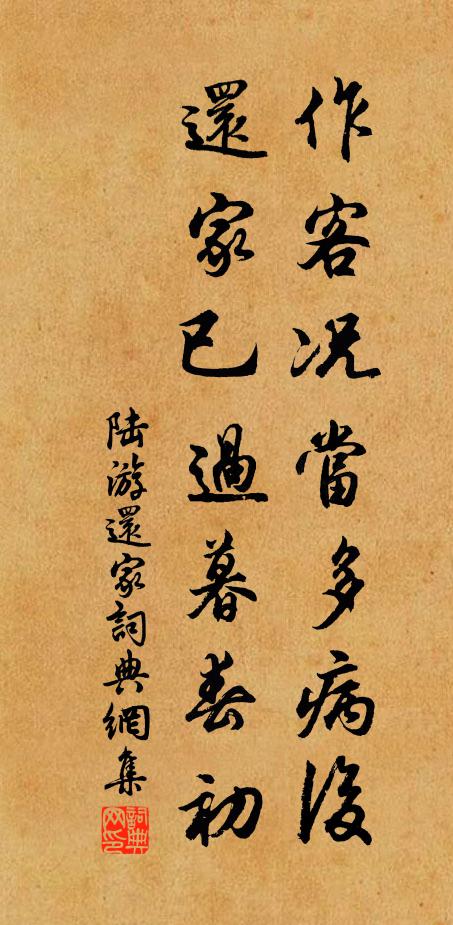 作客况當多病後
還家已過暮春初
陸游還家詞典網集
詞典网印